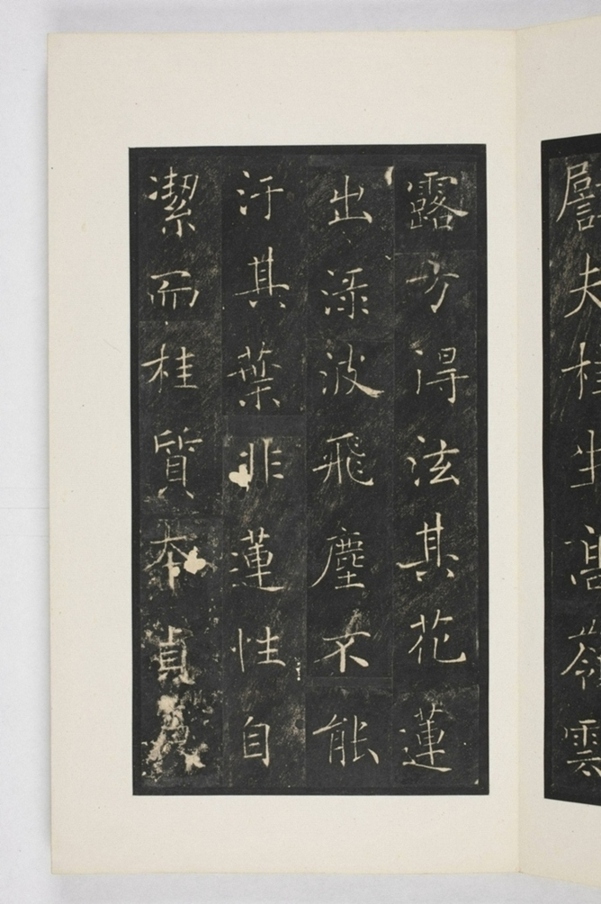 譬夫桂生高嶺雲
露方得泫其花蓮
出淥波飛塵不能
汙其葉非蓮性自
潔而桂質本貞